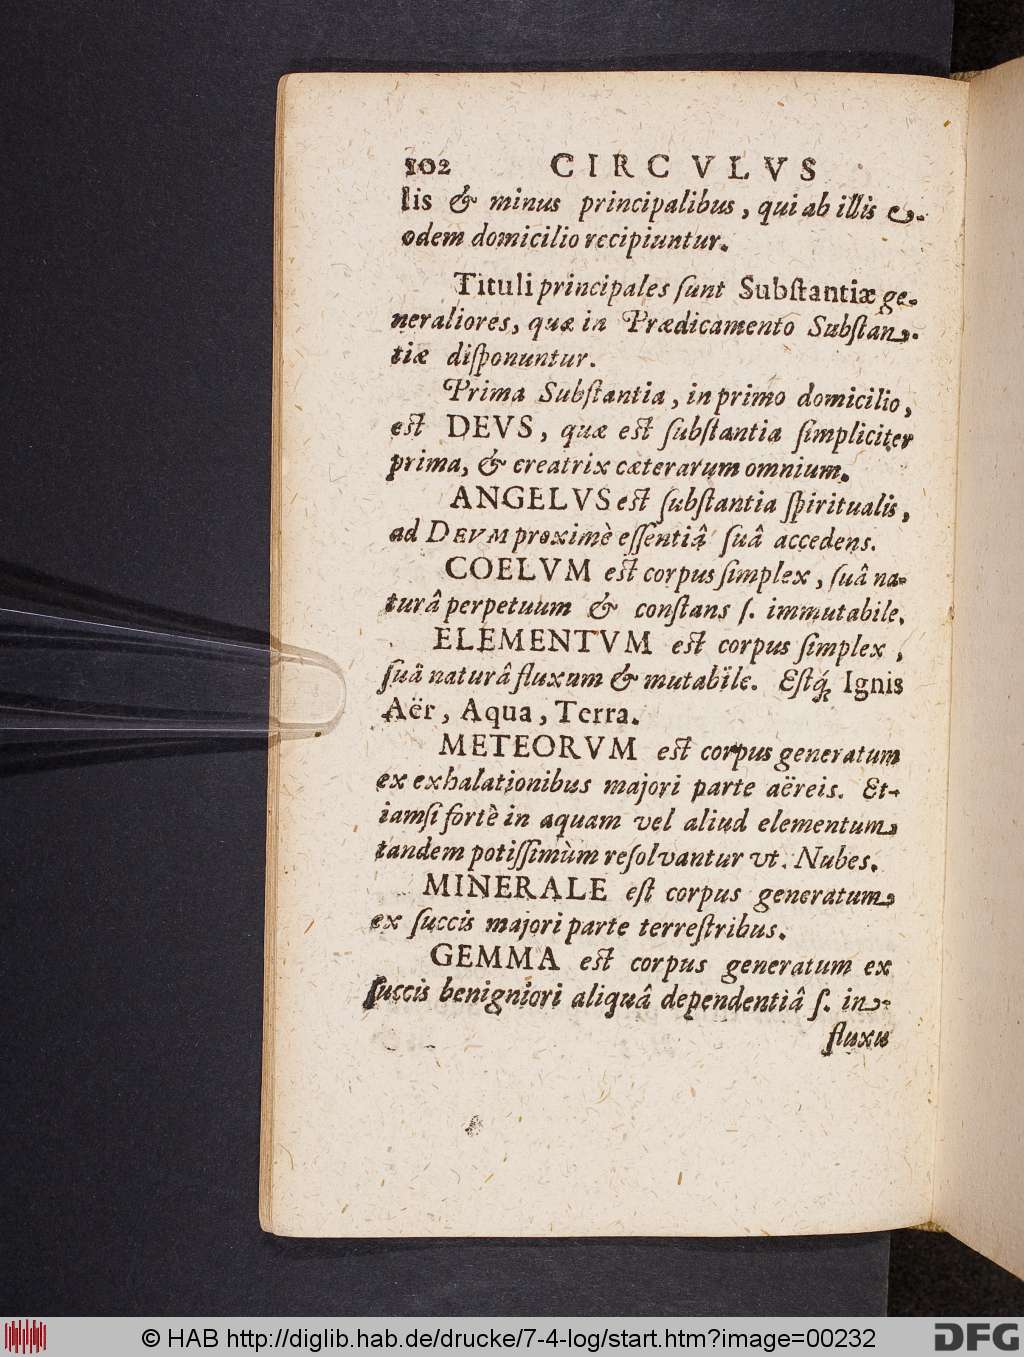 102 CIRCVLVS
lis & minus principalibus, qui ab illis e-
odem domicilio recipiuntur.
Tituli principales ſunt Subſtantiæ ge-
neraliores, quæ in Prædicamento Subſtan-
tiæ diſponuntur.
Prima Subſtantia, in primo domicilio,
eſt DEVS, quæ eſt ſubſtantia ſimpliciter
prima, & creatrix cæterarum omnium.
ANGELVS eſt ſubſtantia ſpiritualis,
ad DEVM proximè eſſentiâ ſuâ accedens.
COELVM eſt corpus ſimplex, ſuâ na-
turâ perpetuum & conſtans ſ. immutabile.
ELEMENTVM eſt corpus ſimplex,
ſuâ naturâ fluxum & mutabile. Eſtq́; Ignis
Aër, Aqua, Terra.
METEORVM eſt corpus generatum
ex exhalationibus majori parte aëreis. Et-
iamſi fortè in aquam vel aliud elementum
tandem potiſſimùm reſolvantur vt. Nubes.
MINERALE eſt corpus generatum
ex ſuccis majori parte terreſtribus.
GEMMA eſt corpus generatum ex
ſuccis benigniori aliquâ dependentiâ ſ. in-
fluxu
© HAB http://diglib.hab.de/drucke/7-4-log/start.htm?image=00232
DFG